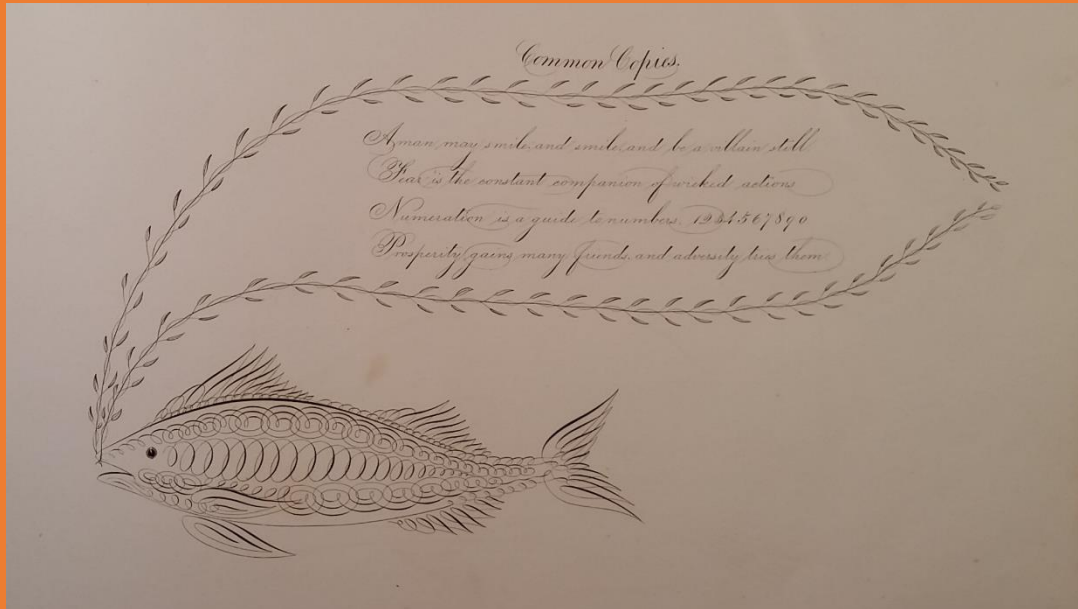 Common Copies.
A man may smile, and smile, and be a villain still.
Fear is the constant companion of wicked actions
Numeration is a guide to numbers. 1234567890
Prosperity gains many friends, and adversity tries them